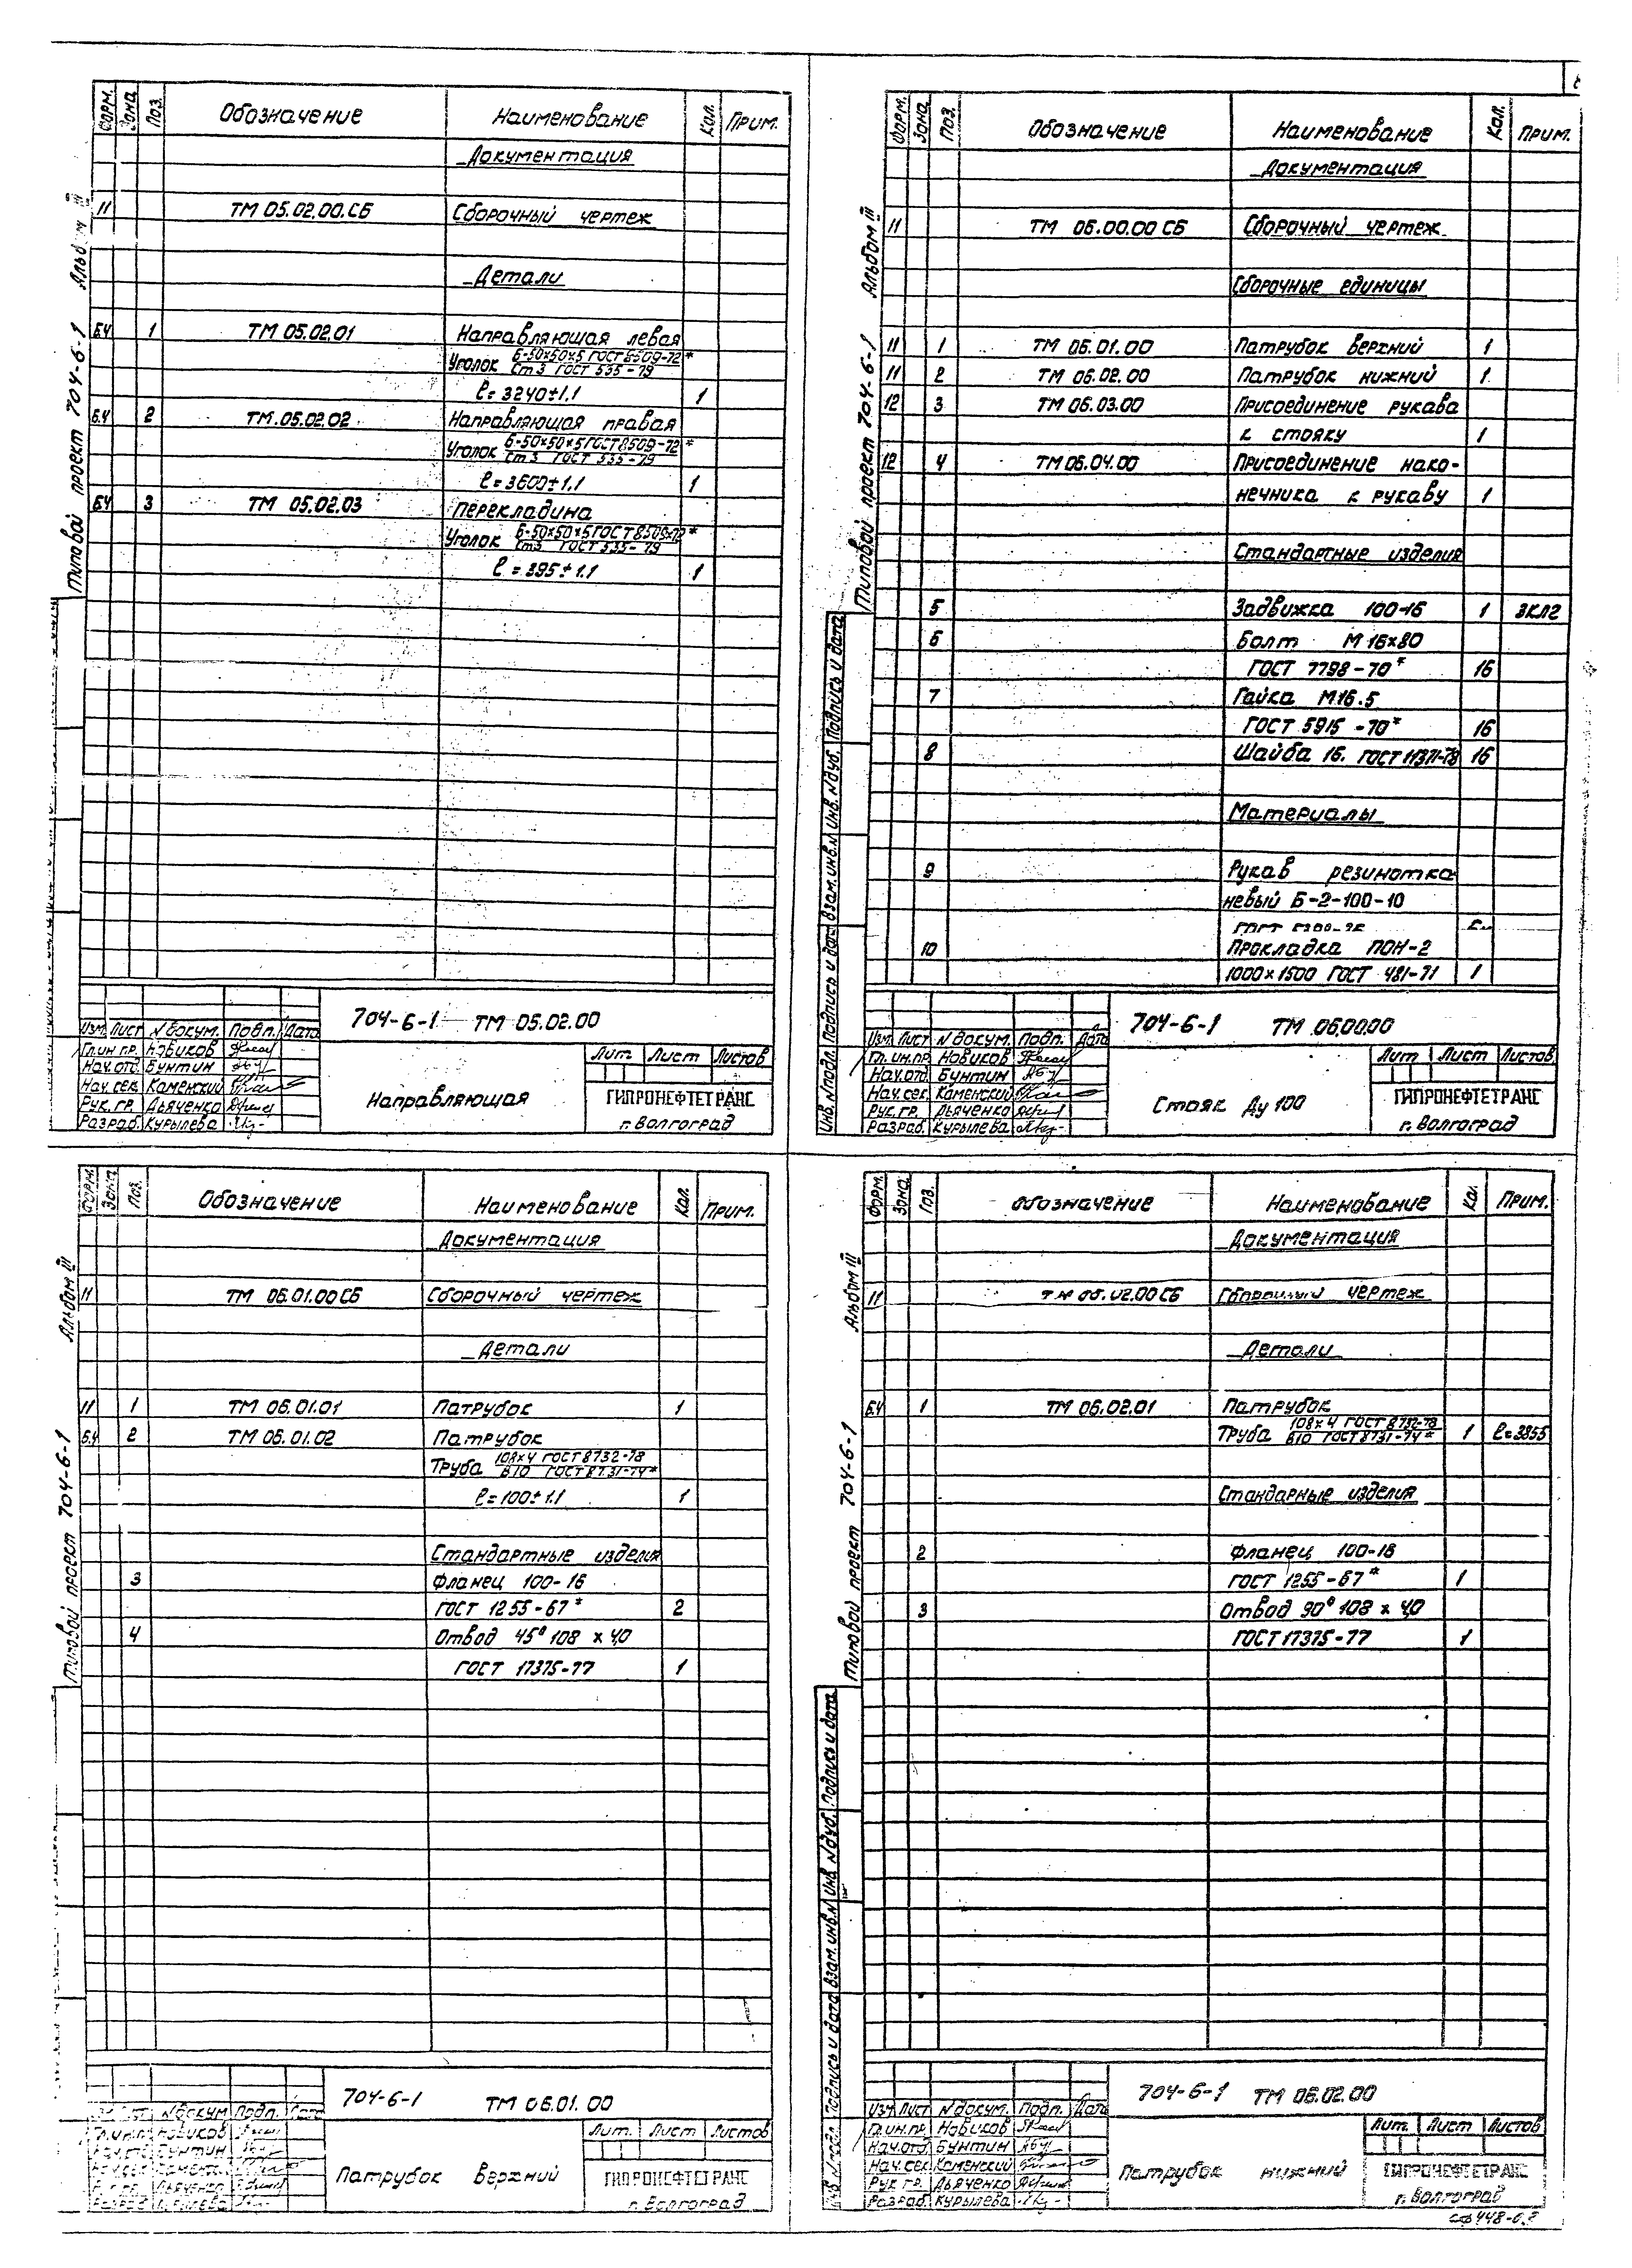 Форм. Зона Поз. Обозначение Наименование Кол. Прим.
Документация
11 ТМ 05.02.00.СБ Сборочный чертеж
Детали
Б4 1 ТМ 05.02.01 Направляющая левая
Уголок Б-50х50х5 ГОСТ 8509-72*
Ст3 ГОСТ 535-79
ℓ=3240±1.1 1
Б4 2 ТМ.05.02.02 Направляющая правая
Уголок Б-50х50х5 ГОСТ 8509-72*
Ст3 ГОСТ 535-79
ℓ=3600±1.1 1
Б4 3 ТМ 05.02.03 Перекладина
Уголок Б-50х50х5 ГОСТ 8509-72*
Ст3 ГОСТ 535-79
ℓ=395±1.1 1
Типовой проект 704-6-1 Альбом III
704-6-1 ТМ 05.02.00
Изм. Лист N докум. Подп. Дата
Гл.ин пр. Новиков
Нач.отд. Бунтин
Нач.сек. Каменский
Рук.гр. Дьяченко
Разраб. Курылева
Направляющая
Лит. Лист Листов
ГИПРОНЕФТЕТРАНС
г. Волгоград
Форм. Зона Поз. Обозначение Наименование Кол. Прим.
Документация
11 ТМ 06.00.00 СБ Сборочный чертеж
Сборочные единицы
11 1 ТМ 06.01.00 Патрубок верхний 1
11 2 ТМ 06.02.00 Патрубок нижний 1
12 3 ТМ 06.03.00 Присоединение рукава
к стояку 1
12 4 ТМ 06.04.00 Присоединение нако-
нечника к рукаву 1
Стандартные изделия
5 Задвижка 100-16 1 ЗКЛ2
6 Болт М16х80
ГОСТ 7798-70* 16
7 Гайка М16.5
ГОСТ 5915-70* 16
8 Шайба 16. ГОСТ 11371-78 16
Материалы
9 Рукав резинотка
невый Б-2-100-10
ГОСТ
10 Прокладка ПОН-2
1000х1500 ГОСТ 481-71 1
Типовой проект 704-6-1 Альбом III
Инв. N подл. Подпись и дата Взам. инв. N Инв. N дуб. Подпись и дата
704-6-1 ТМ 06.00.00
Изм. Лист N докум. Подп. Дата
Гл.ин.пр. Новиков
Нач.отд. Бунтин
Нач.сек. Каменский
Рук.гр. Дьяченко
Разраб. Курылева
Стояк Ду 100
Лит. Лист Листов
ГИПРОНЕФТЕТРАНС
г. Волгоград
Форм. Зона Поз. Обозначение Наименование Кол. Прим.
Документация
11 ТМ 06.01.00 СБ Сборочный чертеж
Детали
11 1 ТМ 06.01.01 Патрубок 1
Б4 2 ТМ 06.01.02 Патрубок
Труба 108х4 ГОСТ 8732-78
В10 ГОСТ 8731-74*
ℓ=100±1.1 1
Стандартные изделия
3 Фланец 100-16
ГОСТ 1255-67* 2
4 Отвод 45° 108 х 4,0
ГОСТ 17375-77 1
Типовой проект 704-6-1 Альбом III
704-6-1 ТМ 06.01.00
N докум. Подп. Дата
Новиков
Бунтин
Дьяченко
Патрубок Верхний
Лит. Лист Листов
ГИПРОНЕФТЕТРАНС
г. Волгоград
Форм. Зона Поз. Обозначение Наименование Кол. Прим.
Документация
11 ТМ 06.02.00 СБ Сборочный чертеж
Детали
Б4 1 ТМ 06.02.01 Патрубок
Труба 108х4 ГОСТ 8732-78
В10 ГОСТ 8731-74* 1 ℓ=3855
Стандарные изделия
2 Фланец 100-16
ГОСТ 1255-67* 1
3 Отвод 90° 108 х 4,0
ГОСТ 17375-77 1
Типовой проект 704-6-1 Альбом III
Подпись и дата Взам. инв. N Инв. N дуб. Подпись и дата
704-6-1 ТМ 06.02.00
Изм. Лист N докум. Подп. Дата
Гл.ин.пр. Новиков
Нач.отд. Бунтин
Нач.сек. Каменский
Рук.гр. Дьяченко
Разраб. Курылева
Патрубок нижний
Лит. Лист Листов
ГИПРОНЕФТЕТРАНС
г. Волгоград